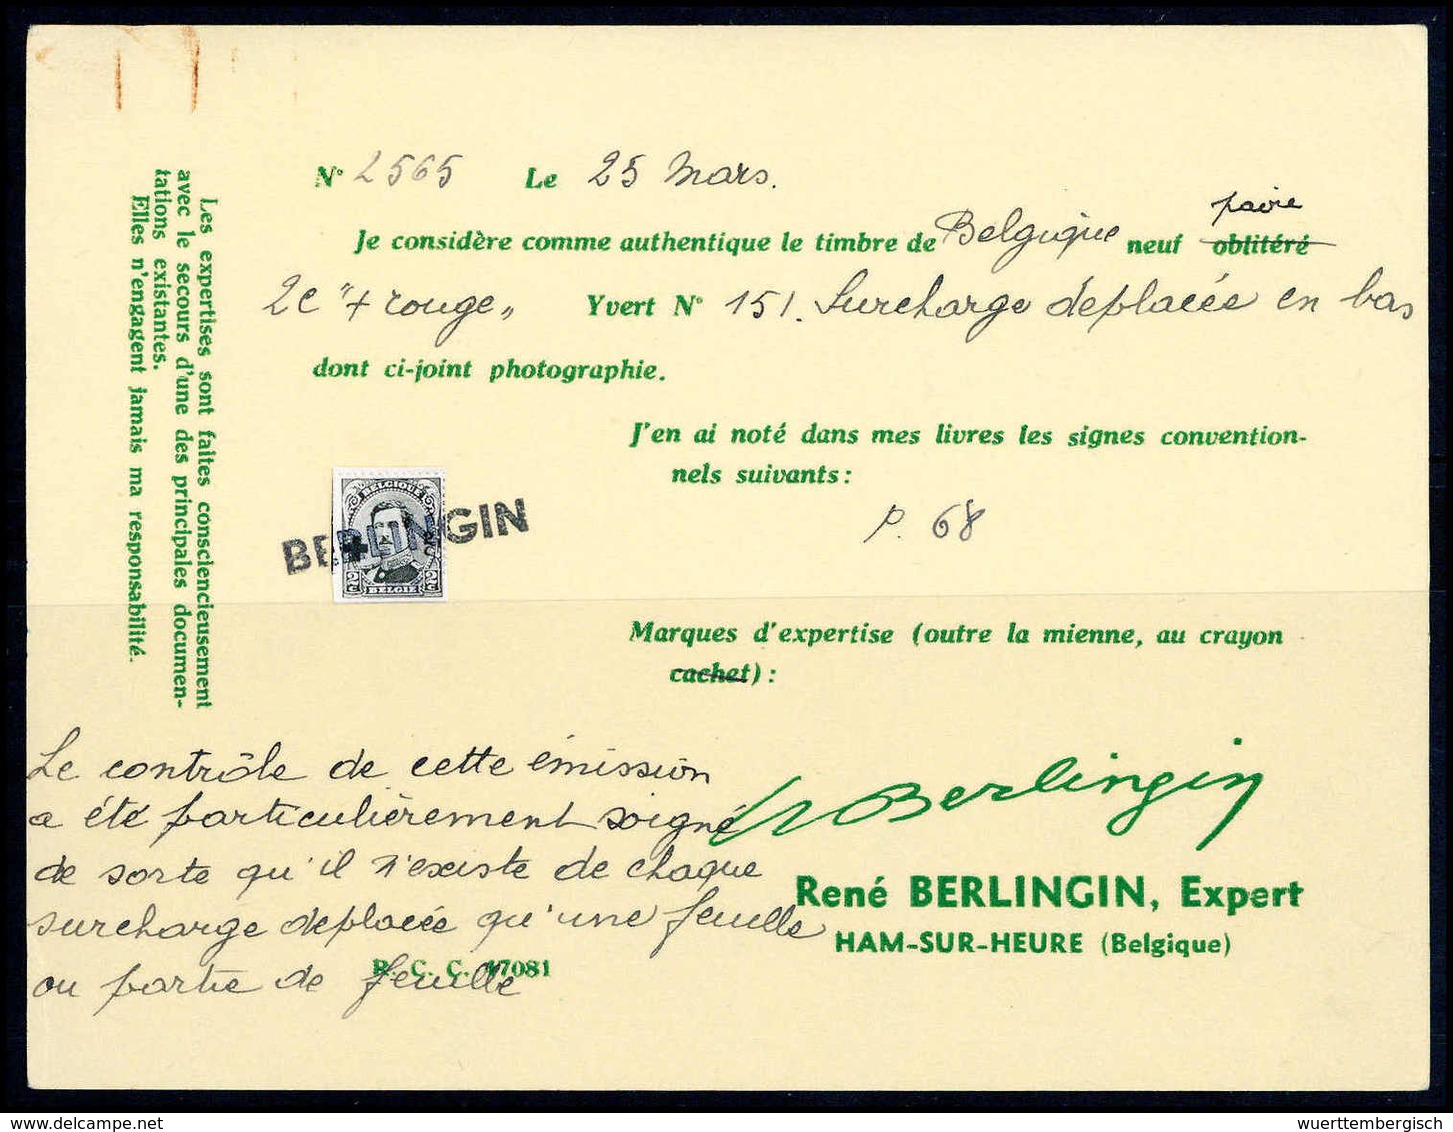 Les expertises sont faites consciencieusement
avec le secours d'une des principales documen-
tations existantes.
Elles n'engagent jamais ma responsabilité.
N° 2565 Le 25 Mars.
paire
Je considère comme authentique le timbre de Belgique neuf oblitéré
2c "+ rouge" Yvert N° 151. Surcharge deplacée en bas
dont ci-joint photographie.
J'en ai noté dans mes livres les signes convention-
nels suivants :
P. 68
BELGIQUE
BERLINGIN
2c 2c
BELGIE
Marques d'expertise (outre la mienne, au crayon
cachet) :
Le contrôle de cette émission
a été particulièrement soigné
de sorte qu'il n'existe de chaque
surcharge deplacée qu'une feuille
ou partie de feuille
Berlingin
René BERLINGIN, Expert
HAM-SUR-HEURE (Belgique)
R. C. C. 17081
wuerttembergisch